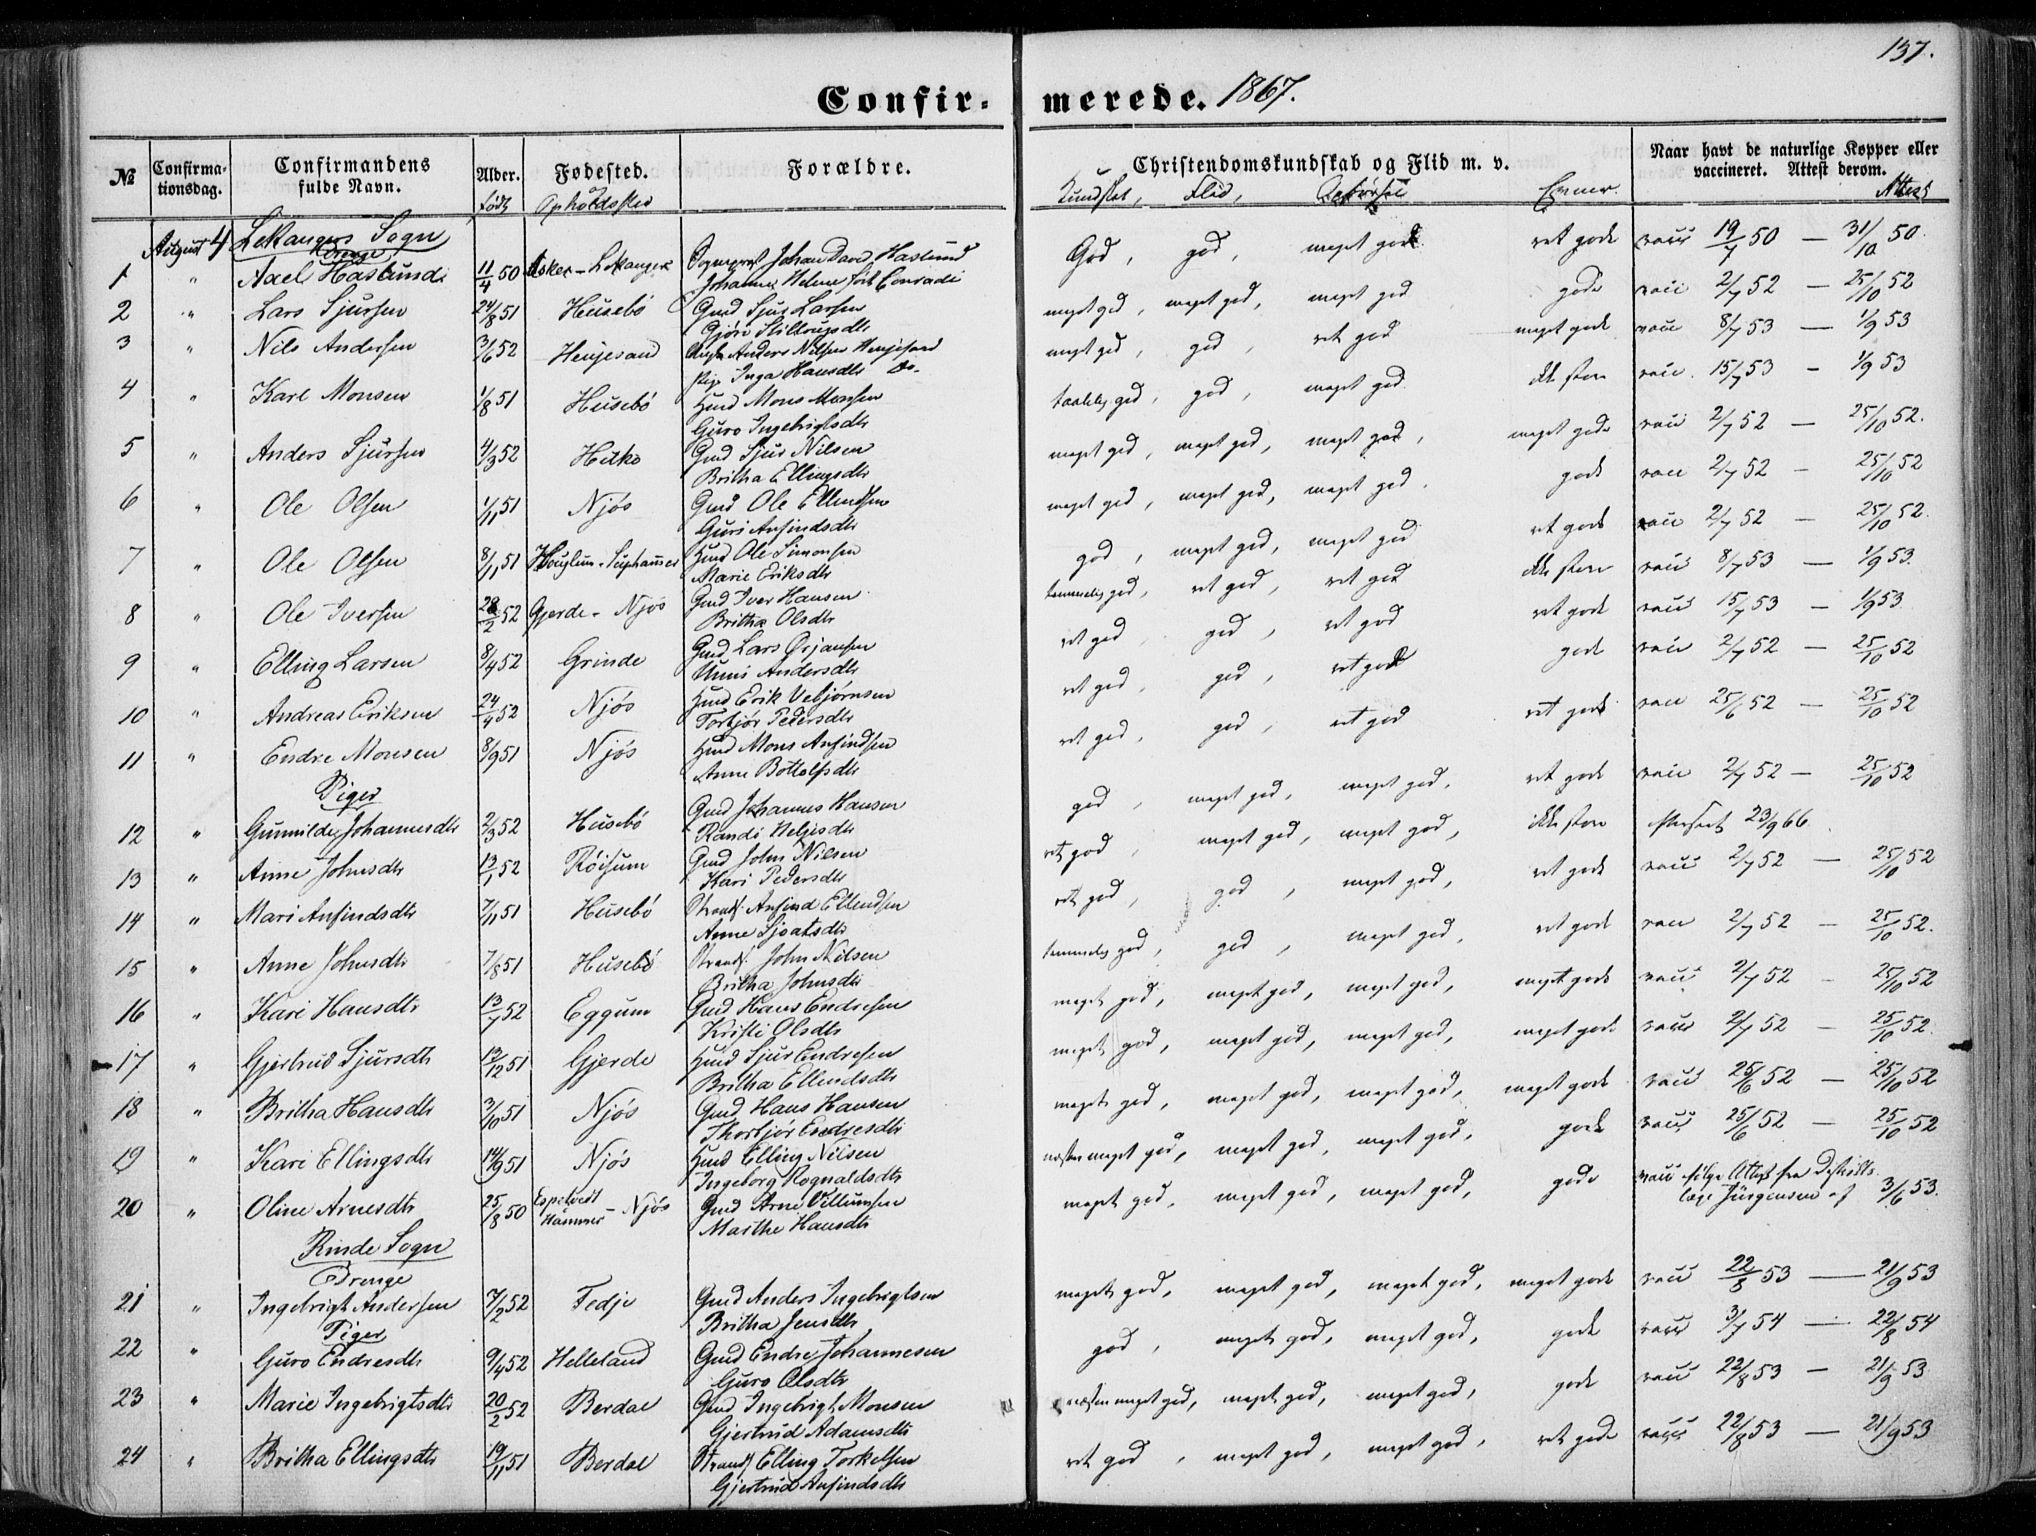 137.
Confirmerede. 1867.
№ Confirmationsdag. Confirmandens fulde Navn. Alder. Fødested. Forældre. Christendomskundskab og Flid m. v. Naar havt de naturlige Kopper eller vaccineret. Attest derom.
født Opholdssted Kundskab, Flid, Evner. Attest
August 4 Lekangers Sogn
Drenge
1 " Axel Haslund 11/4 50 Asker - Lekanger Sogneprest Johan David Haslund God, god, meget god ret gode vacc 19/7 50 — 31/10 50.
Johanne Helene født Conradi
2 " Lars Sjursen 24/8 51 Husebö Gmd Sjur Larsen meget god, meget god, meget god gode vacc 2/7 52 — 25/10 52
Gjöri
3 " Nils Andersen 3/6 52 Henjesand Anders Nilsen Henjesand meget god, god, ret god meget gode vacc 8/7 53 — 1/9 53
pige Inga Hansdtr do.
4 " Karl Monsen 1/8 51 Husebö Hmd Mons Monsen taalelig god, god, meget god. ikke store vacc. 15/7 53 — 1/9 53
Guro Ingebrigtsdtr
5 " Anders Sjursen 4/3 52 Gmd Sjur Nilsen meget god, meget god, meget god, meget gode vacc 2/7 52 — 25/10 52.
Britha Ellingsdtr
6 " Ole Olsen 1/11 51 Njös Gmd Ole Ellendsen meget god, meget god, meget god. gode vacc 2/7 52 — 25/10 52
Guri Anfindsdtr
7 " Ole Olsen 8/11 51 Hmd Ole Simonsen god, meget god, meget god ret gode vacc 2/7 52 — 25/10 52.
Marie Eriksdtr
8 " Ole Iversen 28/2 52 Gjerde - Njös Gmd Iver Hansen temmelig god, ret god, ret god ikke store vacc 8/7 53 — 1/9 53.
Britha Olsdtr
9 " Elling Larsen 8/4 52 Grinde Gmd Lars Ørjansen ret god god, ret god ret gode vacc 15/7 53 — 1/9 53
Unni Andersdtr
10 " Andreas Eriksen 24/4 52 Njös Hmd Erik Vebjørnsen ret god, god, ret god gode vacc 2/7 52 — 25/10 52
Torbjör Pedersdtr
11 " Endre Monsen 8/9 51 Njös Hmd Mons Anfindsen ret god, god, ret god ret gode vacc 25/6 52 — 25/10 52
Anne Bottolfsdtr
Piger
12 " Gunnilde Johannesdtr 2/3 52 Husebö Gmd Johannes Hansen god, meget god, meget god, ret gode vacc 2/7 52 — 25/10 52
Randi Helgesdtr
13 " Anne Johnsdtr 13/1 52 Röisum Gmd John Nilsen ret god, meget god, meget god, ikke store 23/9 66
Kari Pedersdtr
14 " Mari Anfindsdtr 7/11 51 Husebö Strands. Anfind Ellendsen ret god, god, meget god, ret gode vacc 2/7 52 — 25/10 52
Anne Sjoatsdtr
15 " Anne Johnsdtr 7/8 51 Husebö Strands. John Nilsen temmelig god, god, meget god, ret gode vacc 2/7 52 — 25/10 52.
Britha Johnsdtr
16 " Kari Hansdtr 13/7 52 Eggum Gmd Hans Endresen meget god, meget god, meget god, meget gode vacc 2/7 52 — 25/10 52
Kristi Olsdtr
17 " Gjertrud Sjursdtr 13/12 51 Gjerde Hmd Sjur Endresen meget god, meget god, meget god, meget gode vacc 2/7 52 — 25/10 52.
Britha Ellendsdtr
18 " Britha Hansdtr 3/10 51 Njös Gmd Hans Hansen meget god, meget god, meget god, meget gode vacc 25/6 52 — 25/10 52
Thorbjör Endresdtr
19 " Kari Ellingsdtr 14/9 51 Njös Hmd Elling Nilsen næsten meget god, meget god, meget god, gode vacc 25/6 52 — 25/10 52
Ingeborg Rognaldsdtr
20 " Oline Arnesdtr 25/8 50 Espetvedt Hammer - Njös Gmd Arne Villumsen meget god, meget god, meget god, gode vacc ifølge Attest fra Distriktslæge Jürgensen af 3/6 53.
Marthe Hansdtr
Rinde Sogn
Drenge
21 " Ingebrigt Andersen 7/2 52 Fedje Gmd Anders Ingebrigtsen meget god, meget god, meget god, meget gode vacc 22/8 53 — 21/9 53
Britha Jensdtr
Piger
22 " Guro Endresdtr 9/4 52 Helleland Gmd Endre Johannesen god, meget god, meget god, gode vacc 3/7 54 — 22/8 54
Guro Olsdtr
23 " Marie Ingebrigtsdtr 20/2 52 Berdal Gmd Ingebrigt Monsen næsten meget god, meget god, meget god, gode vacc 22/8 53 — 21/9 53
Gjertrud Adamsdtr
24 " Britha Ellingsdtr 19/11 51 Berdal Strands. Elling Torkelsen ret god, meget god, meget god, ret gode vacc 22/8 53 — 21/9 53
Gjertrud Anfindsdtr